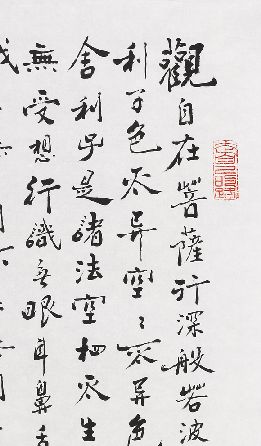 觀自在菩薩行深般若波
利子色不異空〻不異色
舍利子是諸法空相不生
無受想行識無眼耳鼻舌